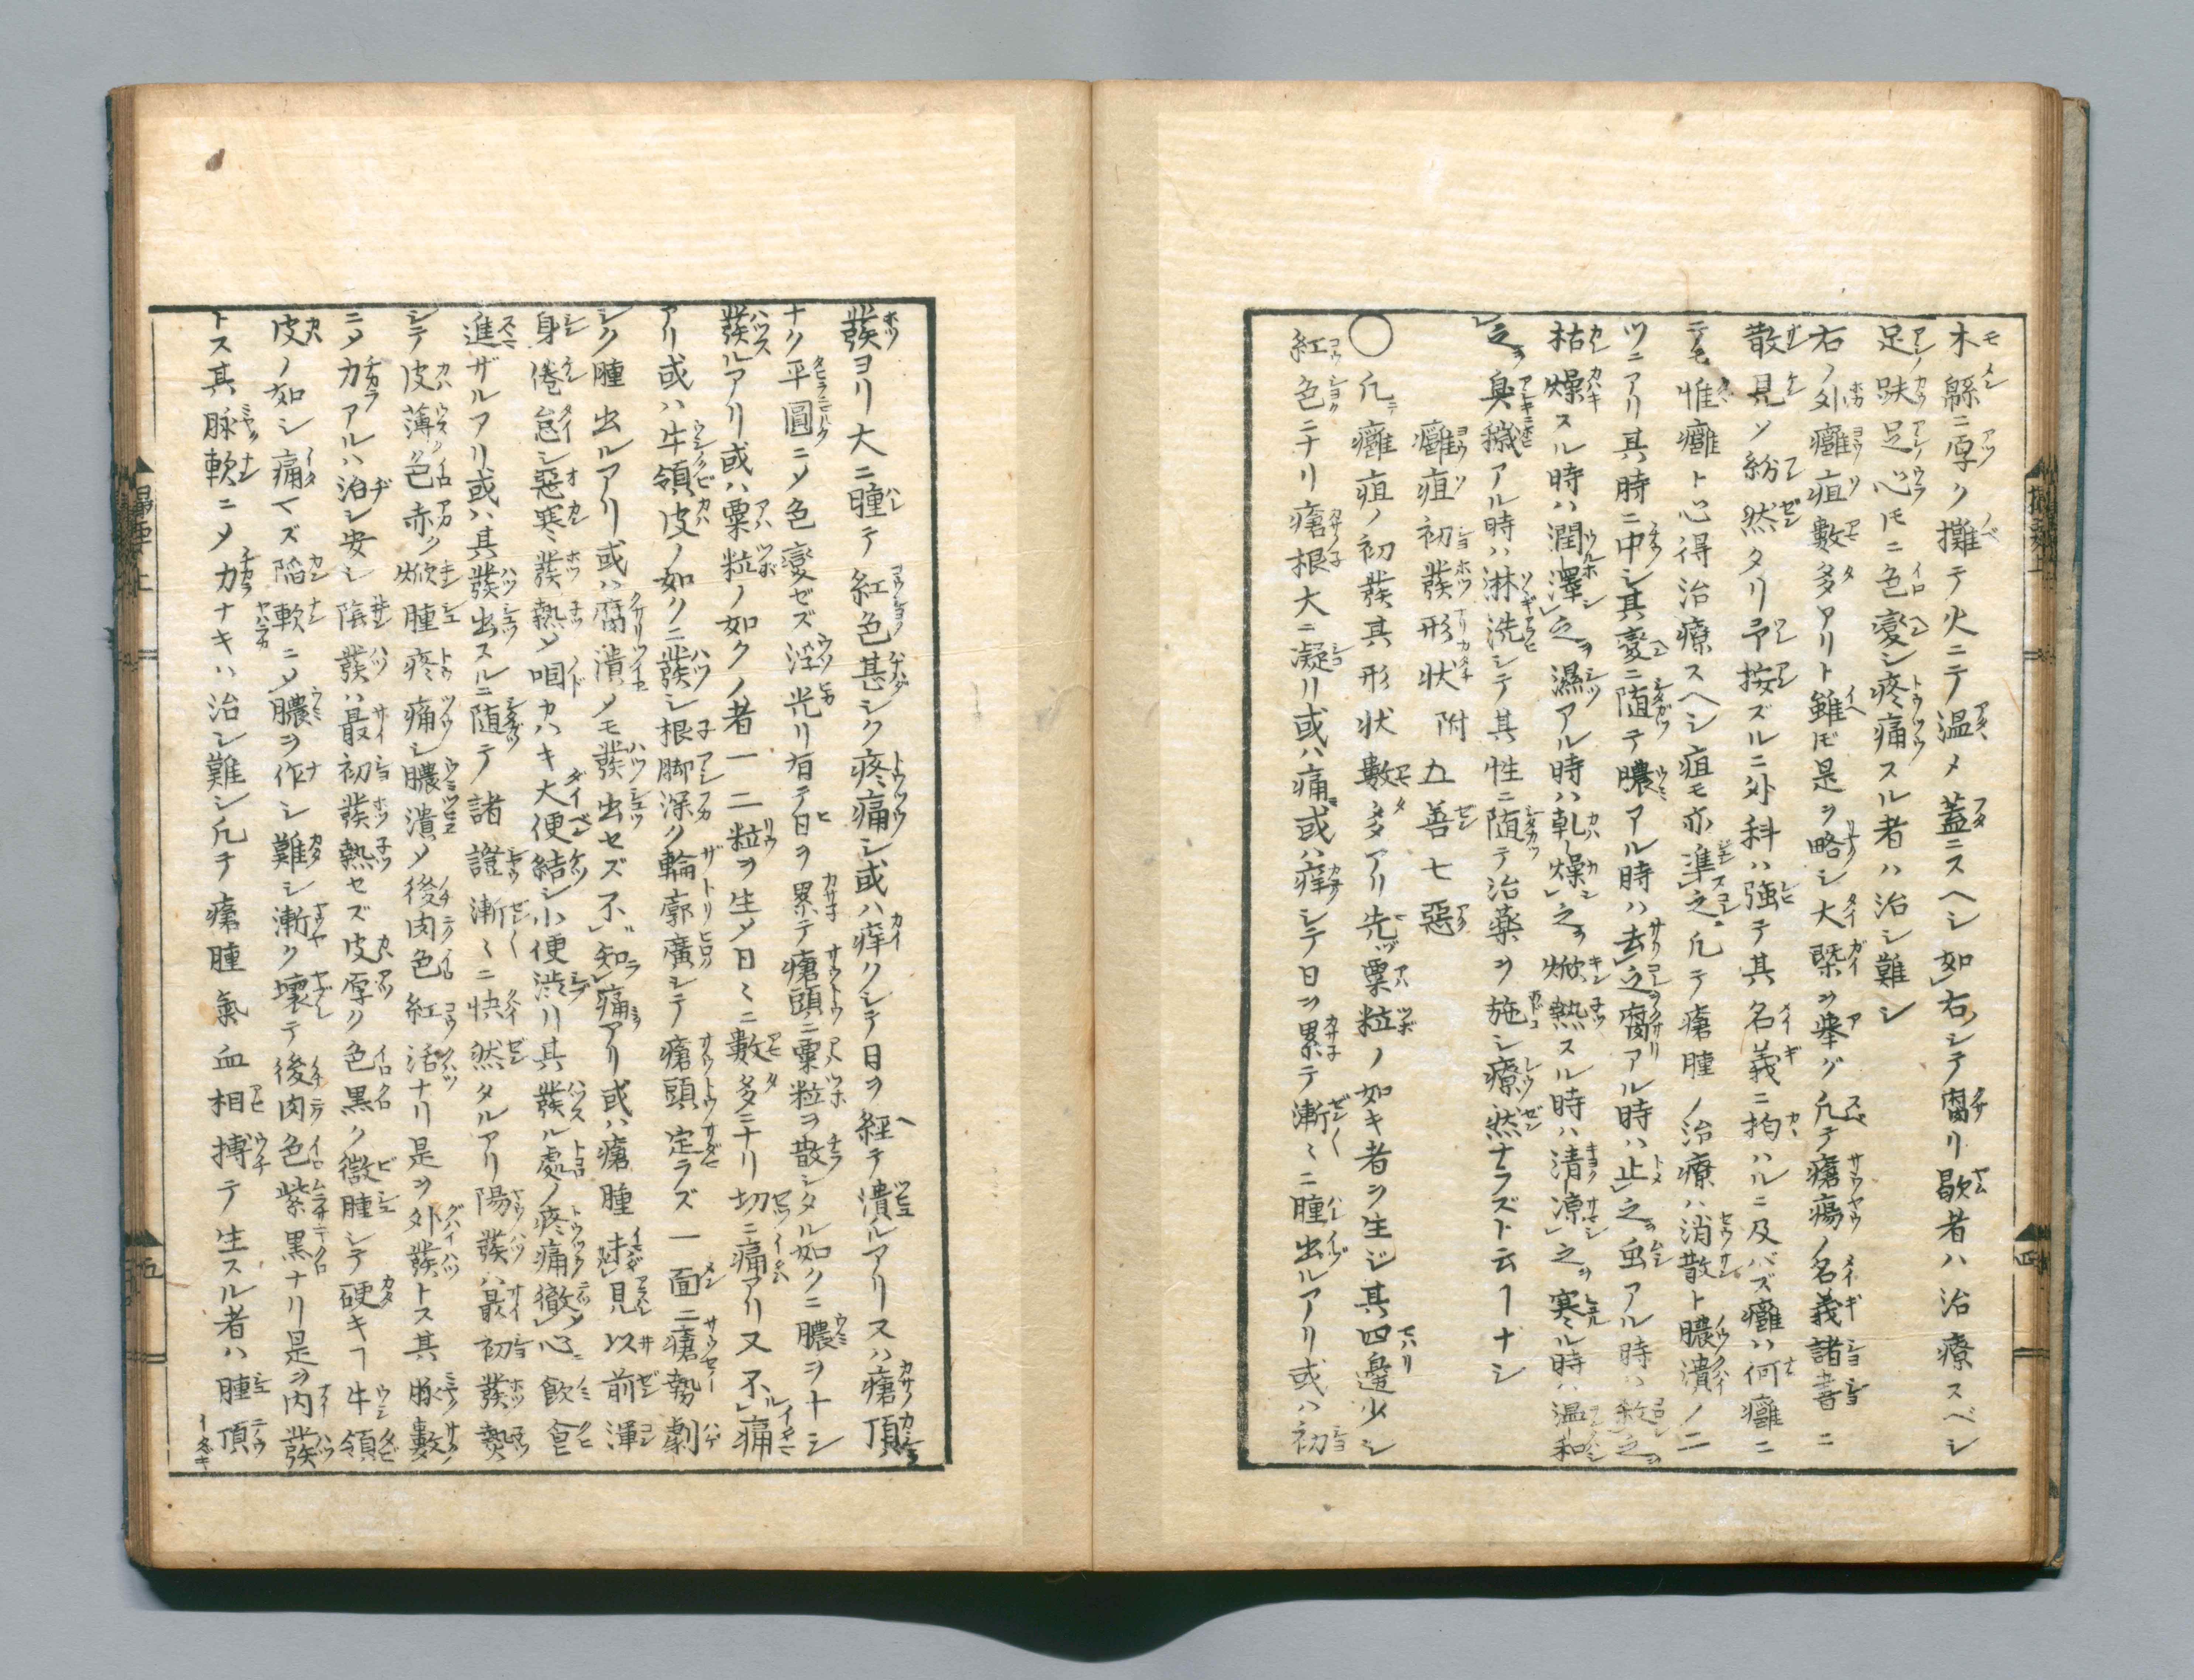 木緜ニ厚ク攤テ火ニテ温メ蓋ニスヘシ如右シテ腐リ歇者ハ治療スベシ
足趺足心𪜈ニ色變シ疼痛スル者ハ治シ難シ
右ノ外癰疽數多アリト雖𪜈是ヲ略シ大槩ヲ挙グ凢テ瘡瘍ノ名義諸書ニ
散見ソ紛然タリ予按ズルニ外科ハ強テ其名義ニ拘ハルニ及バズ癰ハ何癰ニ
テモ惟癰ト心得治療スヘシ疽モ亦準之凢テ瘡腫ノ治療ハ消散ト膿潰ノ二
ツニアリ其時ニ中シ其變ニ随テ膿アル時ハ去之腐アル時ハ止之虫アル時ハ殺之
枯燥スル時ハ潤澤之濕アル時ハ乾燥之焮熱スル時ハ清凉之寒ル時ハ温和
之臭穢アル時ハ淋洗シテ其性ニ随テ治薬ヲ施シ療然ナラズト云ヿナシ
癰疽初發形状附五善七惡
○凢癰疽ノ初發其形状數多アリ先ヅ粟粒ノ如キ者ヲ生ジ其四邉少シ
紅色ニナリ瘡根大ニ凝リ或ハ痛或ハ痒シテ日ヲ累テ漸〻ニ腫出ルアリ或ハ初
發ヨリ大ニ腫テ紅色甚シク疼痛シ或ハ痒クシテ日ヲ経テ潰ルアリ又ハ瘡頂
ナク平圓ニメ色變ゼズ浮光リ有テ日ヲ累テ瘡頭ニ粟粒ヲ散シタル如クニ膿ヲトシ
發ルアリ或ハ粟粒ノ如クノ者一二粒ヲ生メ日〻ニ數多ニナリ切ニ痛アリ又不痛
アリ或ハ牛領皮ノ如クニ發シ根脚深ク輪廓廣シテ瘡頭定ラズ一面ニ瘡勢劇
シク腫出ルアリ或ハ腐潰メモ發出セズ不知痛アリ或ハ瘡腫未見以前渾
身倦怠シ惡寒發熱メ咽カハキ大便結シ小便渋リ其發ル處ノ疼痛徹心ニ飲食
進ザルアリ或ハ其發出スルニ随テ諸證漸〻ニ快然タルアリ陽發ハ最初發熱
シテ皮薄ク色赤ク焮腫疼痛シ膿潰メ後肉色紅活ナリ是ヲ外發トス其脉數
ニメカアルハ治シ安シ陰發ハ最初發熱セズ皮厚ク色黒ク微腫シテ硬キヿ牛領
皮ノ如シ痛マズ陥軟ニメ膿ヲ作シ難シ漸ク壊テ後肉色紫黒ナリ是ヲ内發
トス其脉軟ニメカナキハ治シ難シ凢テ瘡腫氣血相搏テ生スル者ハ腫頂